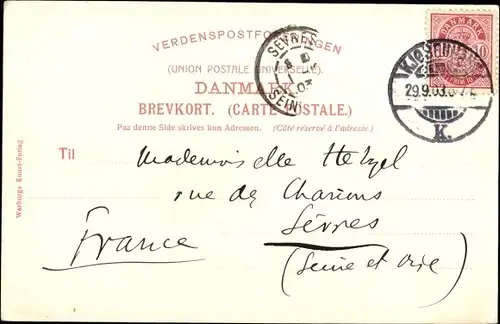 VERDENSPOSTFORENINGEN
(UNION POSTALE UNIVERSELLE).
DANMARK
BREVKORT. (CARTE POSTALE.)
Paa denne Side skrives kun Adressen. (Côté réservé à l'adresse.)
DANMARK
10
KJØBENHAVN
29.9.03.6-7
K.
SEVRES
03
SEINE
Til
Mademoiselle Hetzel
rue des
Sèvres
France
(Seine et Oise)
Warburgs Kunst-Forlag